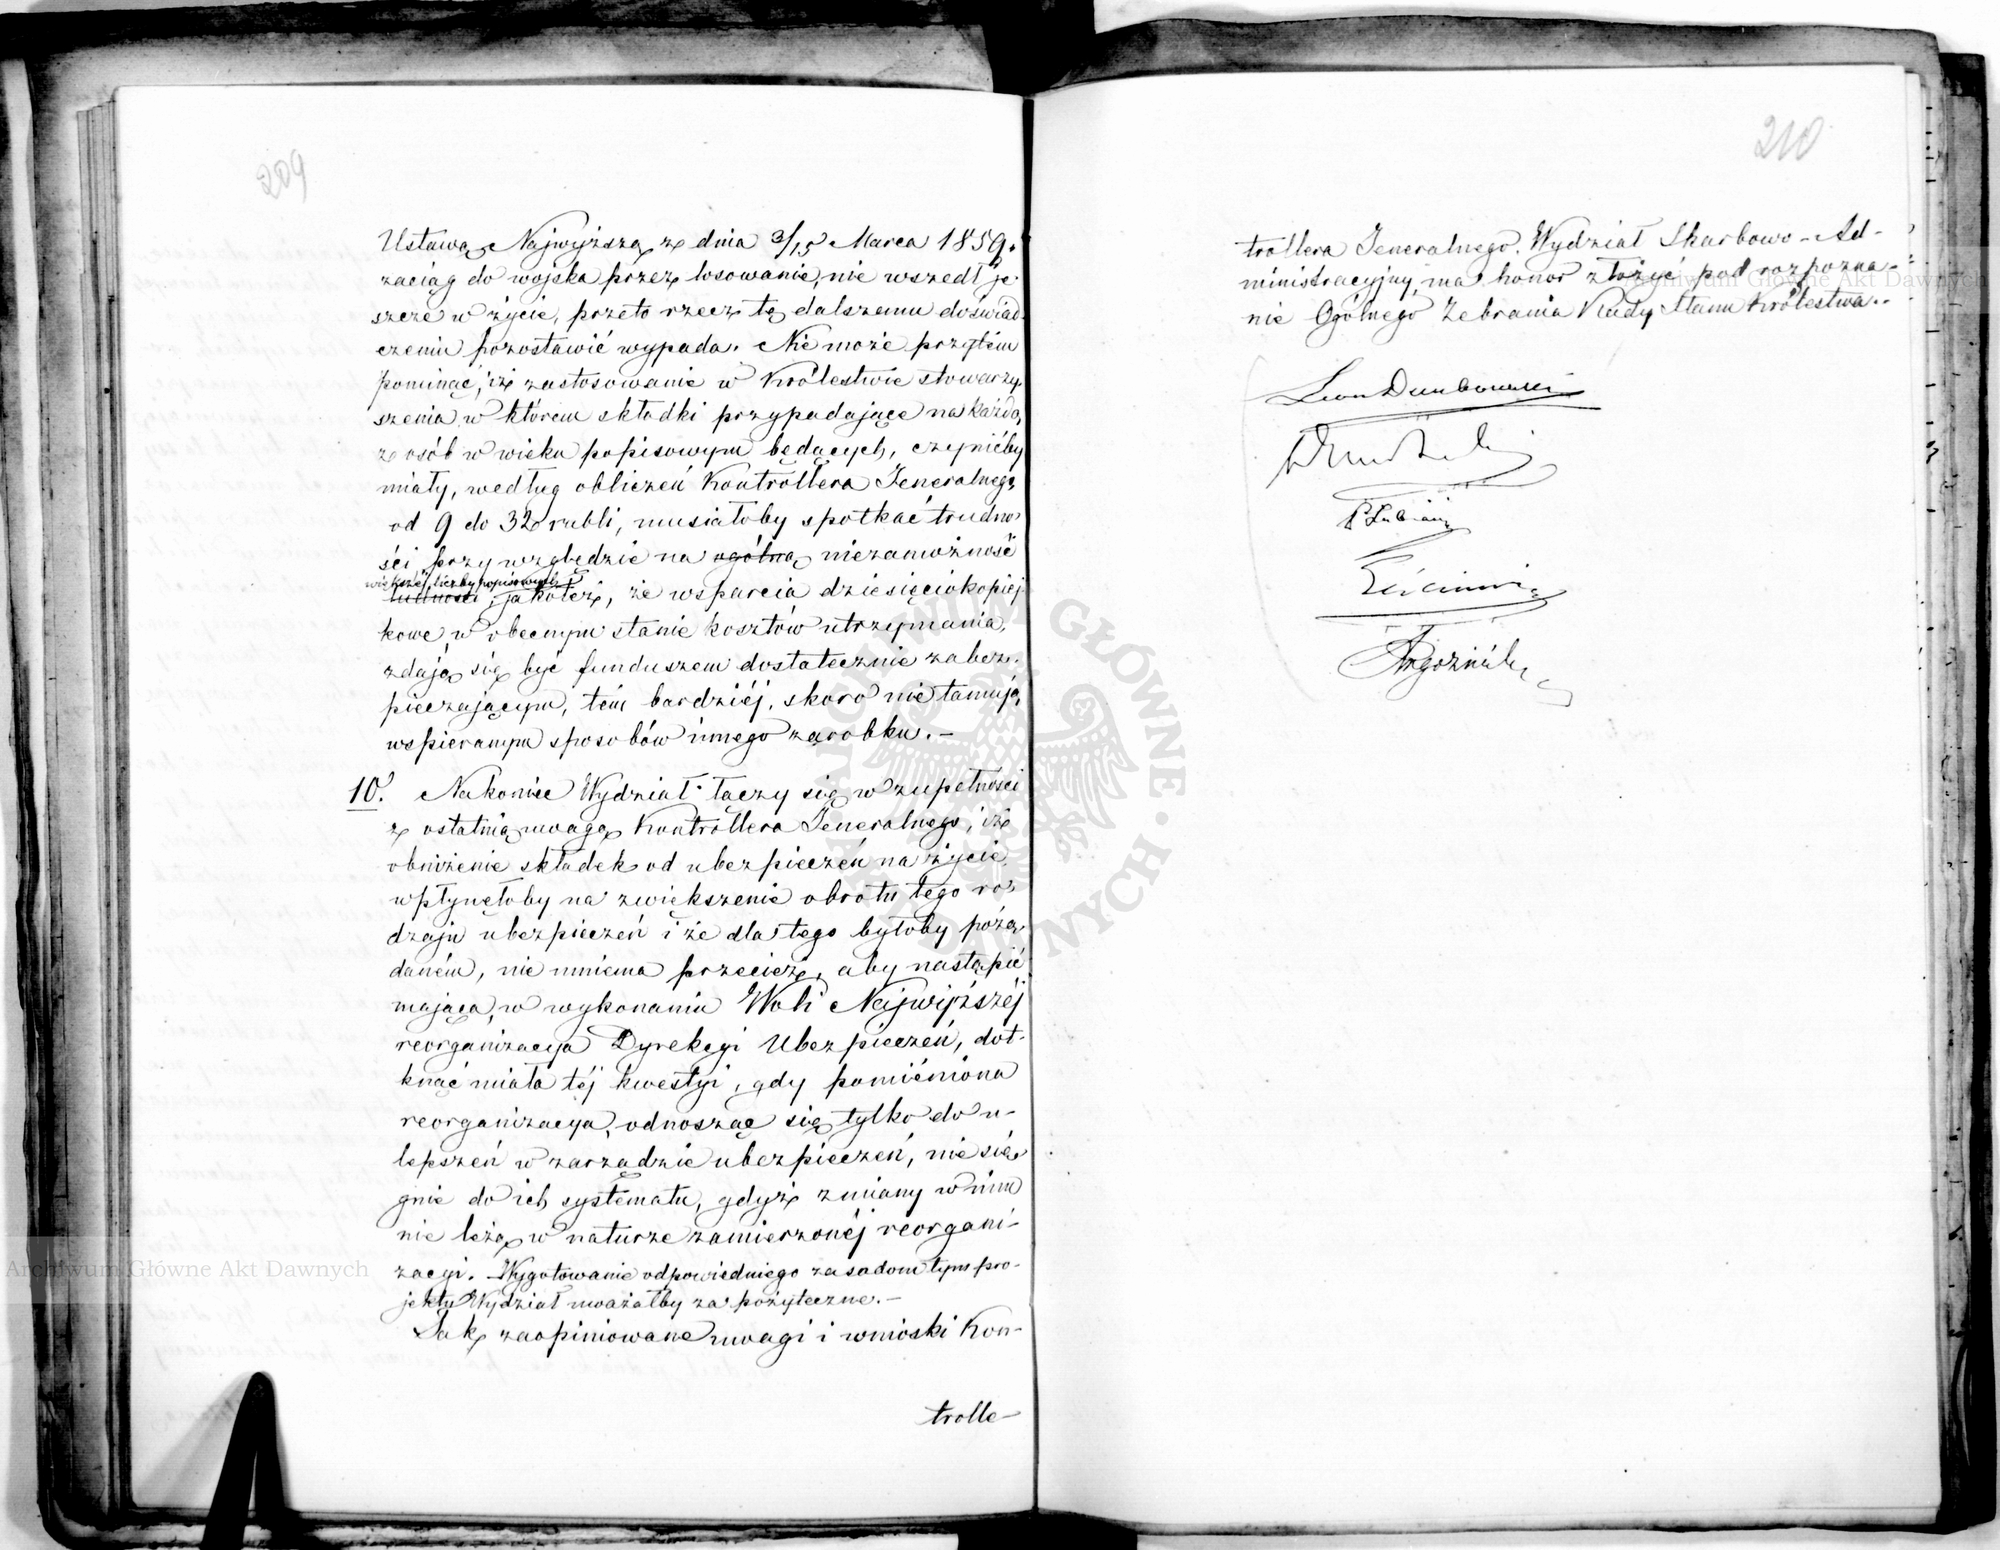 209
Ustawą Najwyższą z dnia 3/15 Marca 1859.
zaciąg do wojska przez losowanie, nie wszedł je-
szcze w życie, przeto rzecz tę dalszemu doświad-
czeniu pozostawić wypada. Nie może przytém
pominąć, iż zastosowanie w Królestwie stowarzy-
szenia w którem składki przypadające na każdą
z osób w wieku popisowym będących, czynićby
miały, według obliczeń Kontrollera Jeneralnego
od 9 do 32 rubli, musiałoby spotkać trudno-
ści przy względzie na ogólną niezamożność
większéj liczby popisowych
ludności, jakoteż, że wsparcia dziesięciokopiej-
kowe w obecnym stanie kosztów utrzymania,
zdają się być funduszem dostatecznie zabez-
pieczającym, tém bardziéj, skoro nie tamują
wspieranym sposobów innego zarobku.-
10. Nakoniec Wydział łączy się w zupełności
z ostatnią uwagą Kontrollera Jeneralnego, iż
obniżenie składek od ubezpieczeń na życie,
wpłynęłoby na zwiększenie obrotu tego ro-
dzaju ubezpieczeń i że dla tego byłoby pożą-
daném, nie mniema przecież, aby nastąpić
mająca w wykonaniu Woli Najwyższéj
reorganizacya Dyrekcyi Ubezpieczeń, dot-
knąć miała téj kwestyi, gdy pomiéniona
reorganizacya, odnosząc się tylko do u-
lepszeń w zarządzie ubezpieczeń, nie się-
gnie do ich systematu, gdyż zmiany w nim
nie leżą w naturze zamierzonéj reorgani-
zacyi. Wygotowanie odpowiedniego zasadom tym pro-
jektu Wydział uważałby za pożyteczne.-
Tak zaopiniowane uwagi i wnioski Kon-
trolle-
210
trollera Jeneralnego. Wydział Skarbowo-Ad-
ministracyjny ma honor złożyć pod rozpozna-
nie Ogólnego Zebrania Rady Stanu Królestwa.
Leon Dembowski
Archiwum Główne Akt Dawnych
Archiwum Główne Akt Dawnych
ARCHIWUM GŁÓWNE AKT DAWNYCH